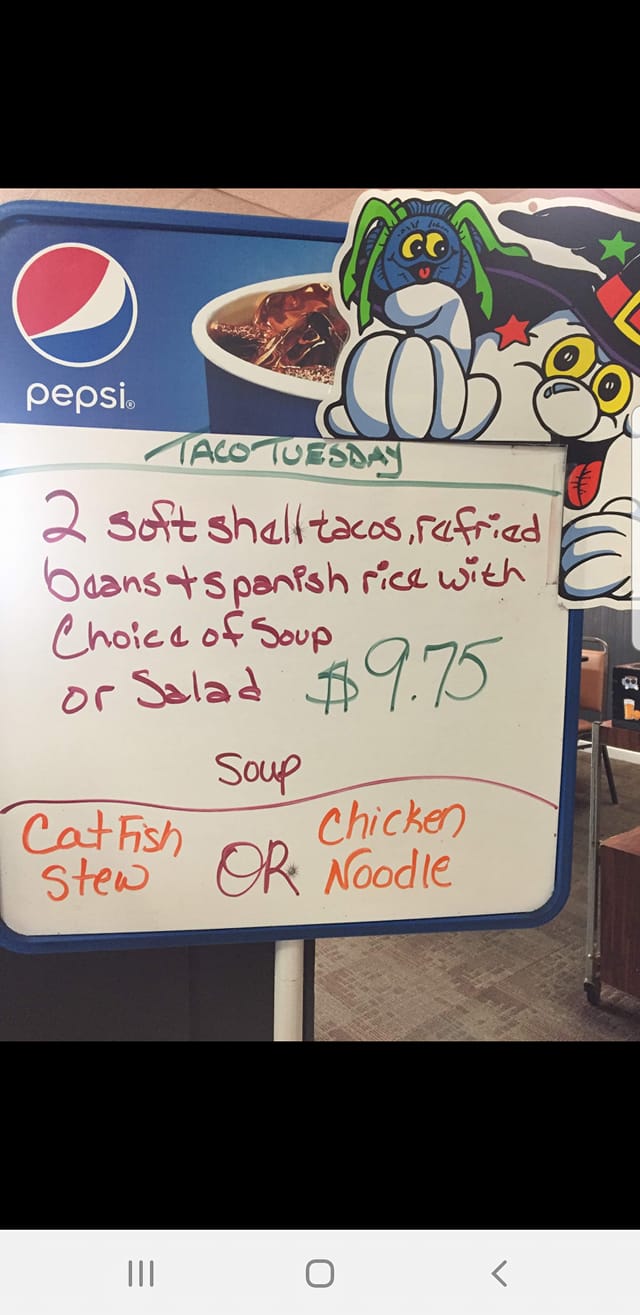 pepsi®
TACO TUESDAY
2 soft shell tacos, refried
beans + spanish rice with
Choice of Soup
or Salad $9.75
Soup
CatFish Chicken
Stew OR Noodle